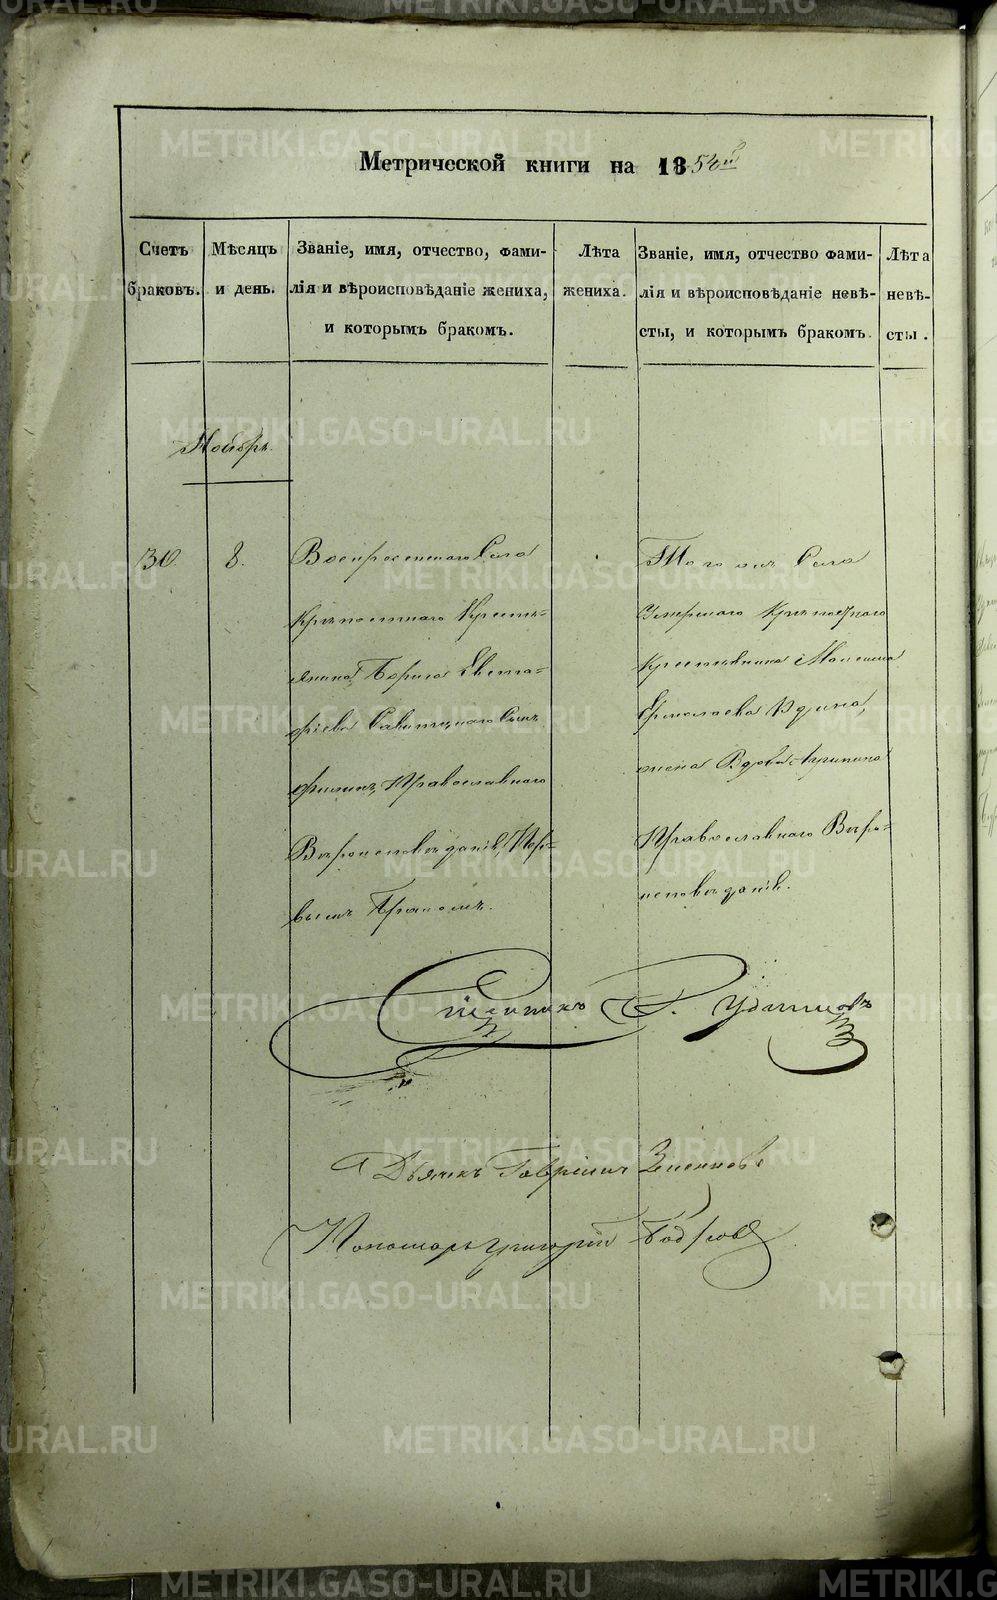 Метрической книги на 18
Счетъ браковъ.
Мѣсяцъ и день.
Званіе, имя, отчество, фами-
лія и вѣроисповѣданіе жениха,
и которымъ бракомъ.
Лѣта
жениха.
Званіе, имя, отчество фами-
лія и вѣроисповѣданіе невѣ-
сты, и которымъ бракомъ.
Лѣта
невѣ-
сты.
Ноябрь.
30.
8.
Воскресенскаго Села
Крѣпостнаго Кресть-
янина Бориса
Сынъ
Филипъ, Православнаго
Вѣроисповѣданія, Пер-
вымъ Бракомъ.
Того же Села
Умершаго Крѣпостнаго
Крестьянина
Ермолаева
жена Вдова Агрипина
Православнаго Вѣро-
исповѣданія.
Священникъ
Дьячекъ Гавріилъ
Пономарь Григорій
METRIKI.GASO-URAL.RU